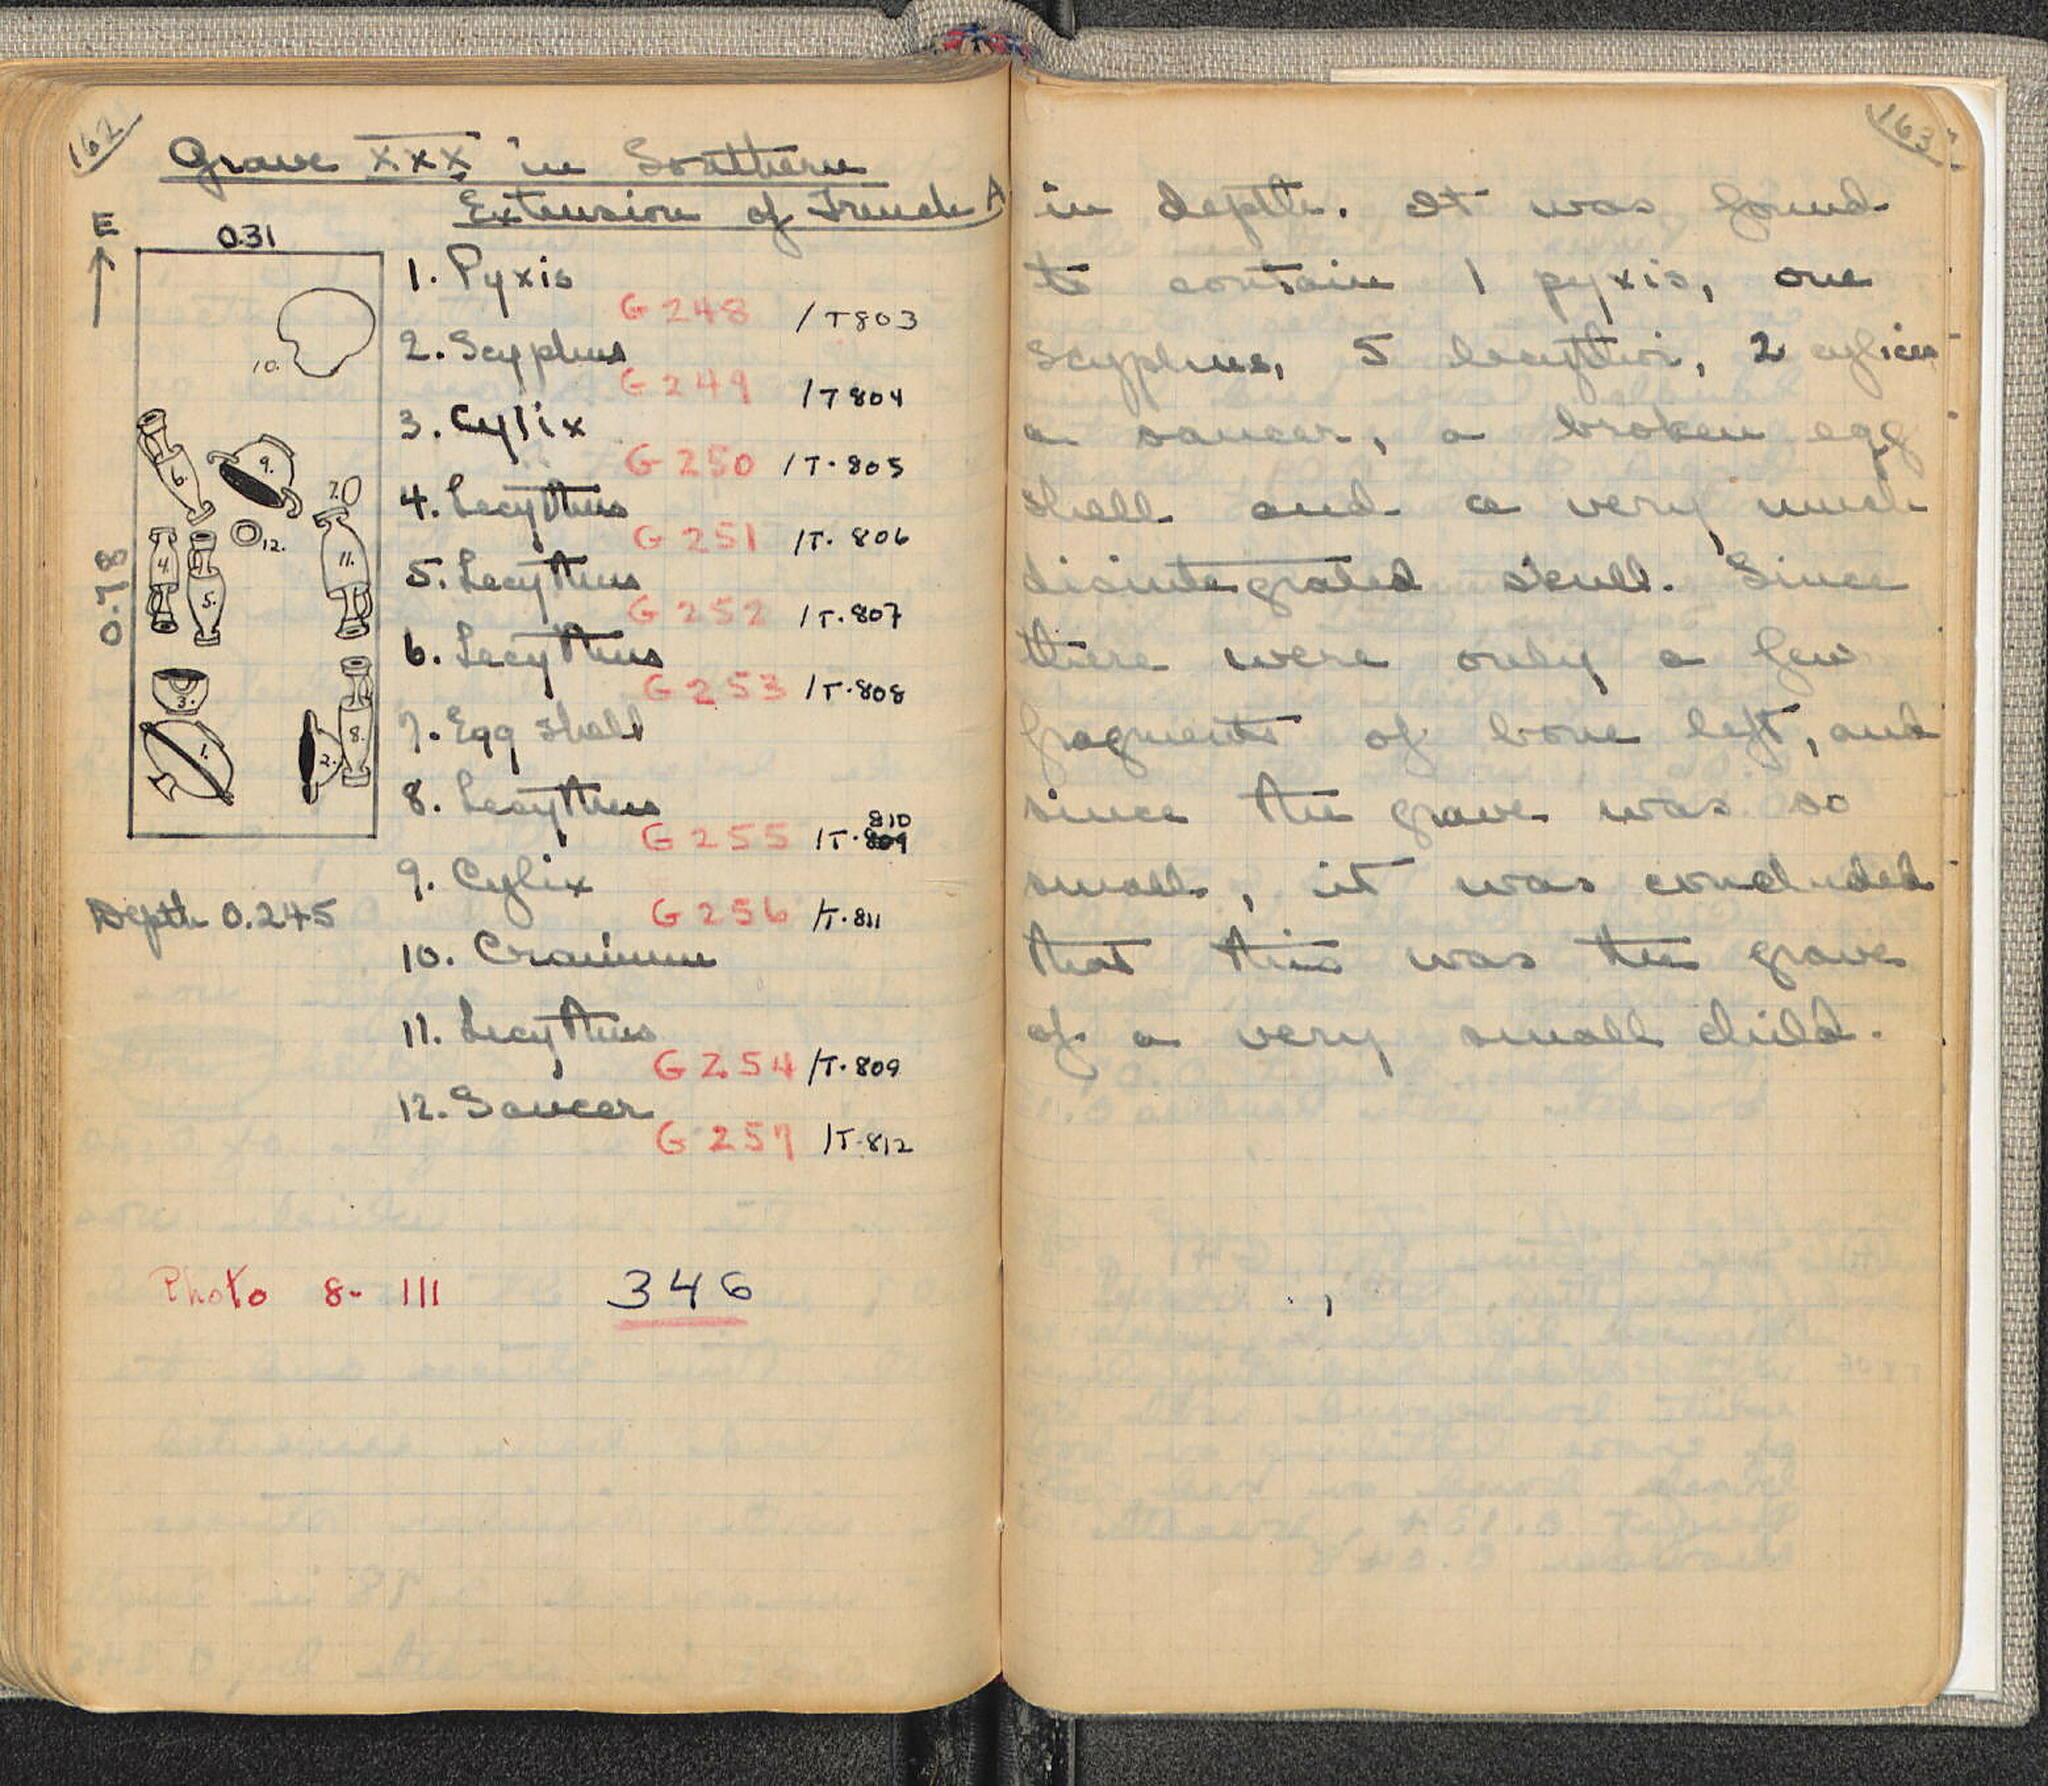 162
Grave XXX in Southern
Extension of Trench A
E
0.31
0.78
10.
6.
9.
7.
12.
4.
5.
11.
3.
1.
2.
8.
Depth 0.245
1. Pyxis
G 248 /T803
2. Scyphus
G 249 /T804
3. Cylix
G 250 /T.805
4. Lecythus
G 251 /T. 806
5. Lecythus
G 252 /T.807
6. Lecythus
G 253 /T.808
7. Egg shell
8. Lecythus
810
G 255 /T.809
9. Cylix
G 256 /T.811
10. Cranium
11. Lecythus
G 254 /T.809
12. Saucer
G 257 /T.812
Photo 8-111 346
163
in depth. It was found
to contain 1 pyxis, one
scyphus, 5 lecythoi, 2 cylices
a saucer, a broken egg
shell and a very much
disintegrated skull. Since
there were only a few
fragments of bone left, and
since the grave was so
small, it was concluded
that this was the grave
of a very small child.